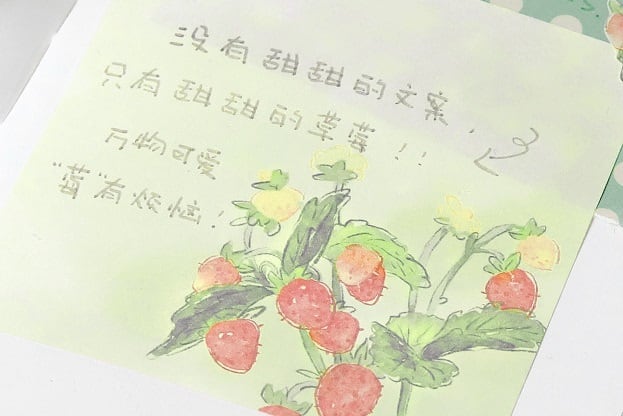 没有甜甜的文案，
只有甜甜的草莓!!
万物可爱
"莓"有烦恼!